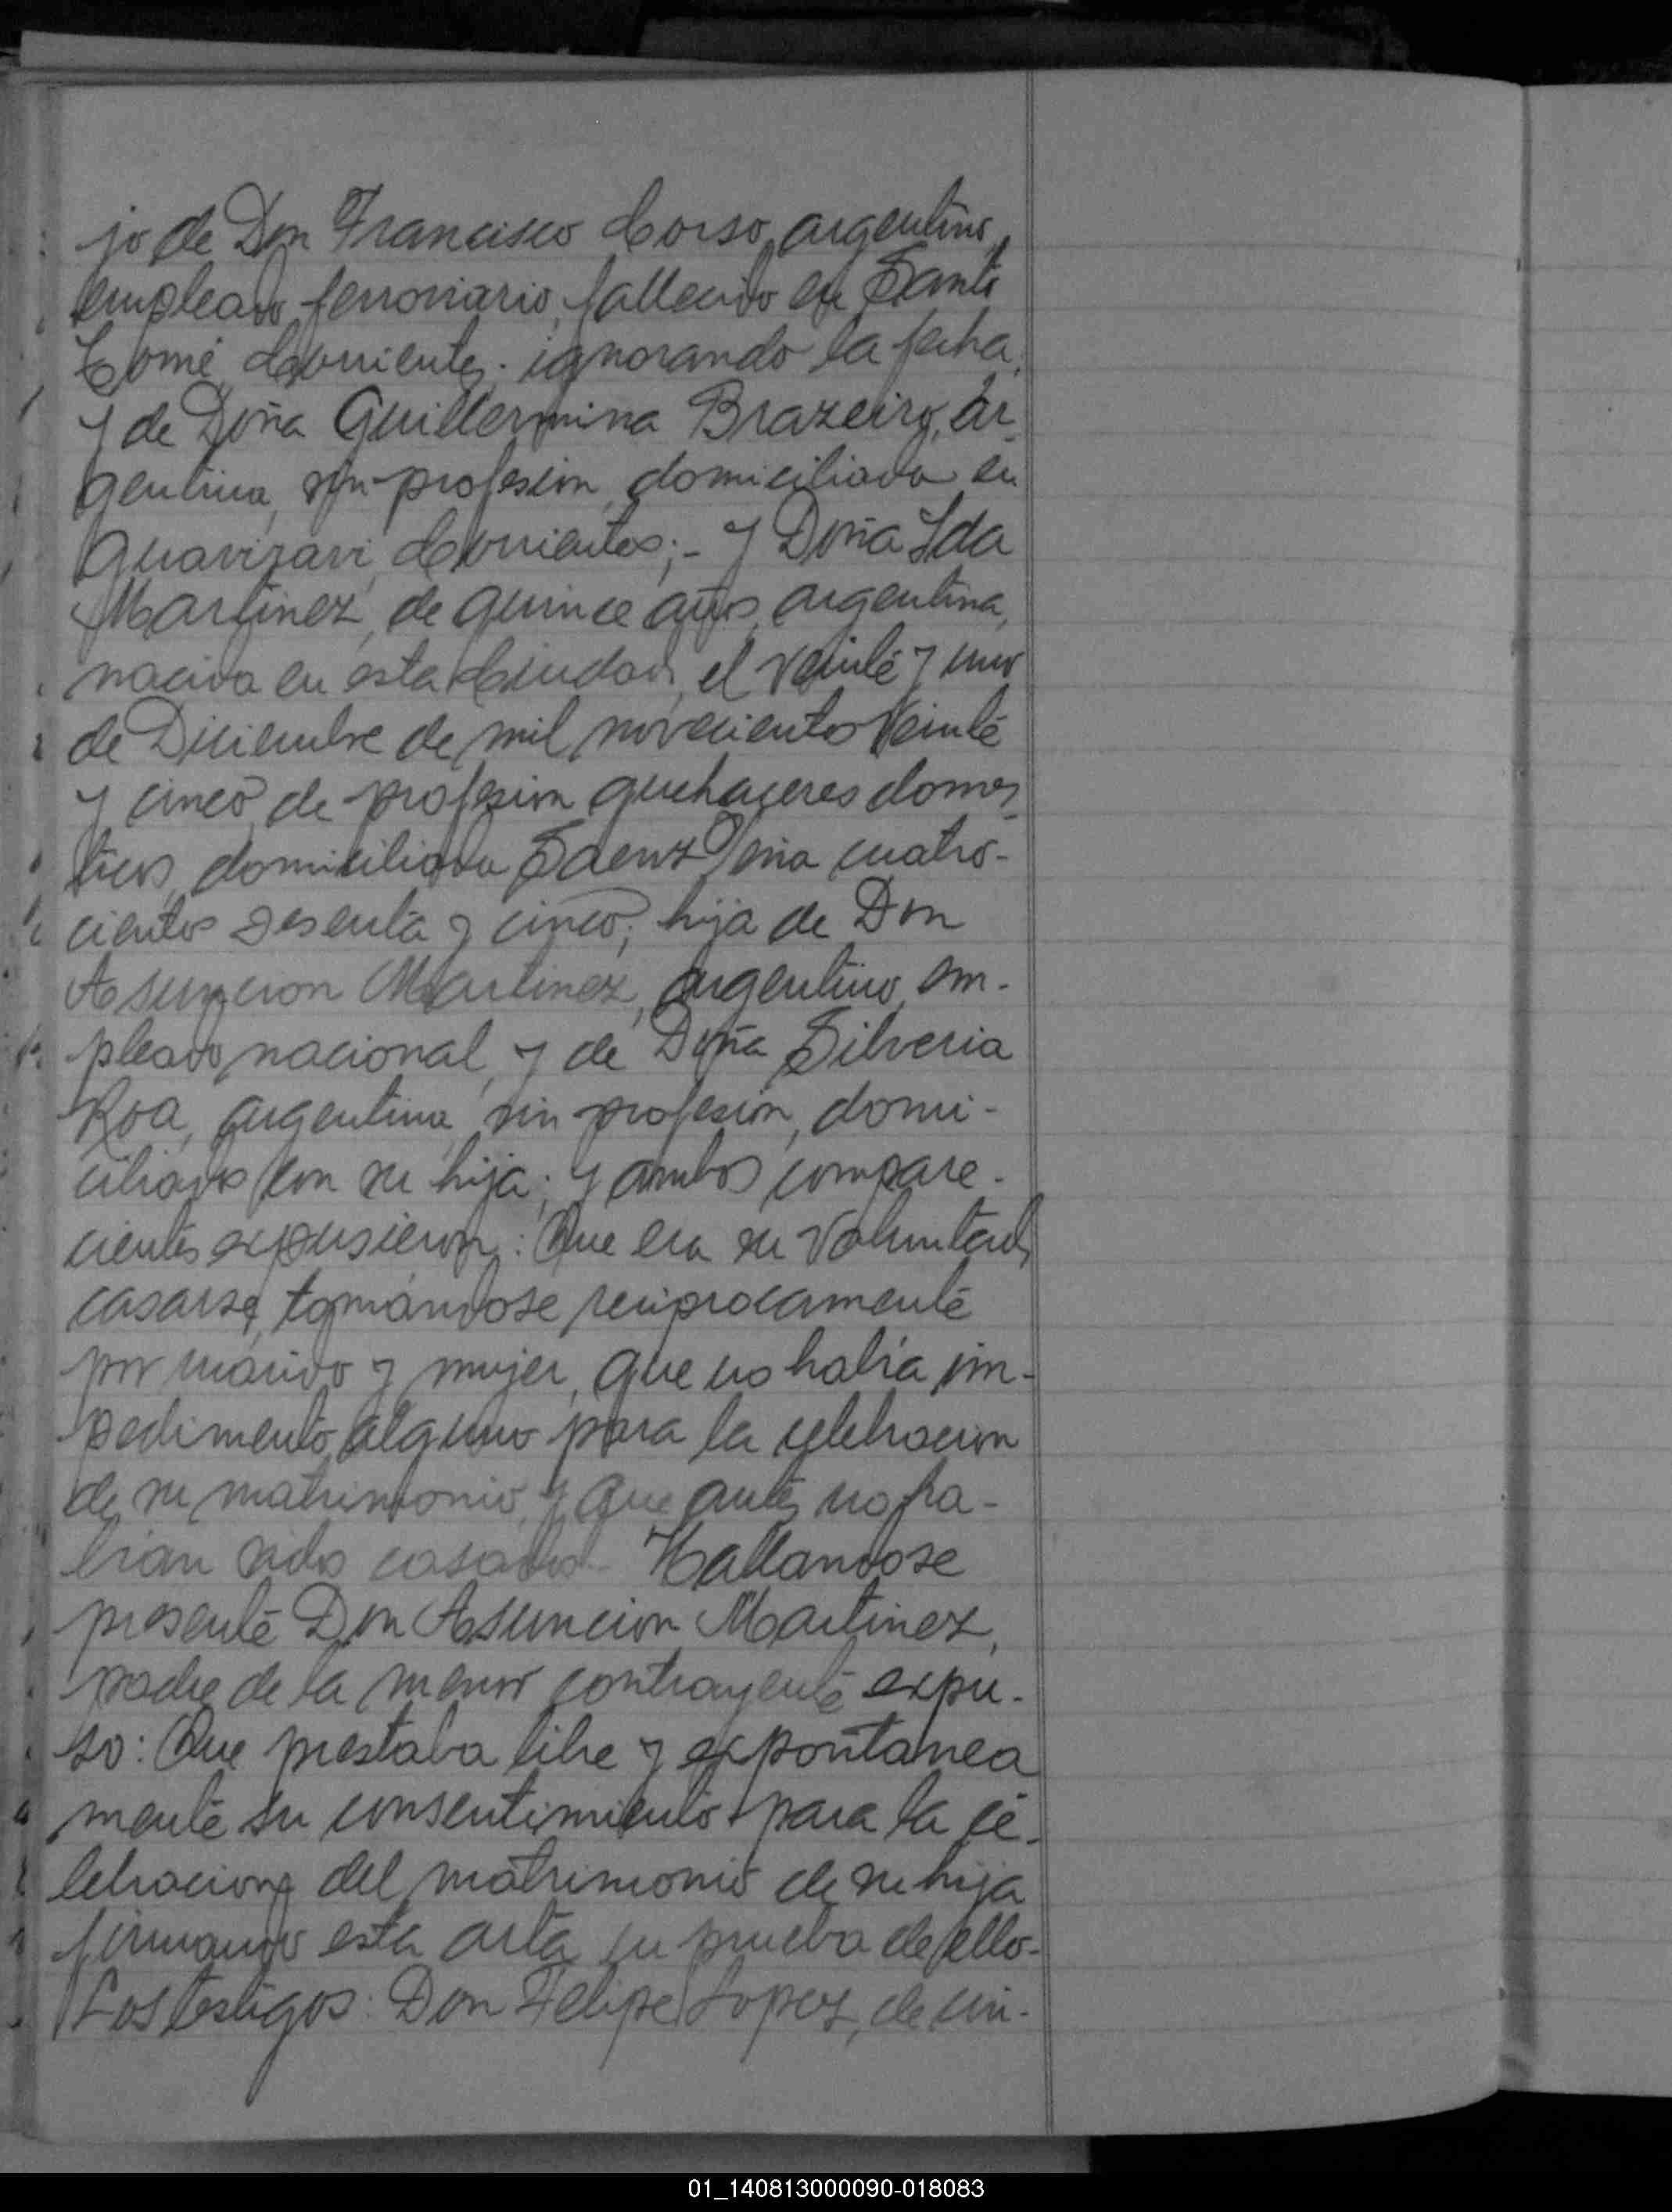 jo de Don Francisco Corso, argentino,
empleado ferroviario, fallecido en Santo
Tomé, Corrientes. ignorando la fecha,
y de Doña Guillermina Brazeiro, ar-
gentina, sin profesion, domiciliada en
Guaviravi, Corrientes;- y Doña Ida
Martinez, de quince años, argentina,
nacida en esta Ciudad, el veinte y uno
de Diciembre de mil novecientos veinte
y cinco, de profesion quehaceres domes-
ticos, domiciliada Saenz Peña cuatro-
cientos sesenta y cinco; hija de Don
Asuncion Martinez, argentino, em-
pleado nacional, y de Doña Silveria
Roa, argentina, sin profesion, domi-
ciliados con su hija; y ambos compare-
cientes expusieron: Que era su voluntad
casarse, tomandose reciprocamente
por marido y mujer, que no habia im-
pedimento alguno para la celebracion
de su matrimonio, y que antes no ha-
bian sido casados- Hallandose
presente Don Asuncion Martinez,
padre de la menor contrayente expu-
so: Que prestaba libre y expontanea
mente su consentimiento para la ce-
lebracion del matrimonio de su hija
firmando esta acta en prueba de ello-
Los testigos: Don Felipe Lopez, de cin-
01_140813000090-018083